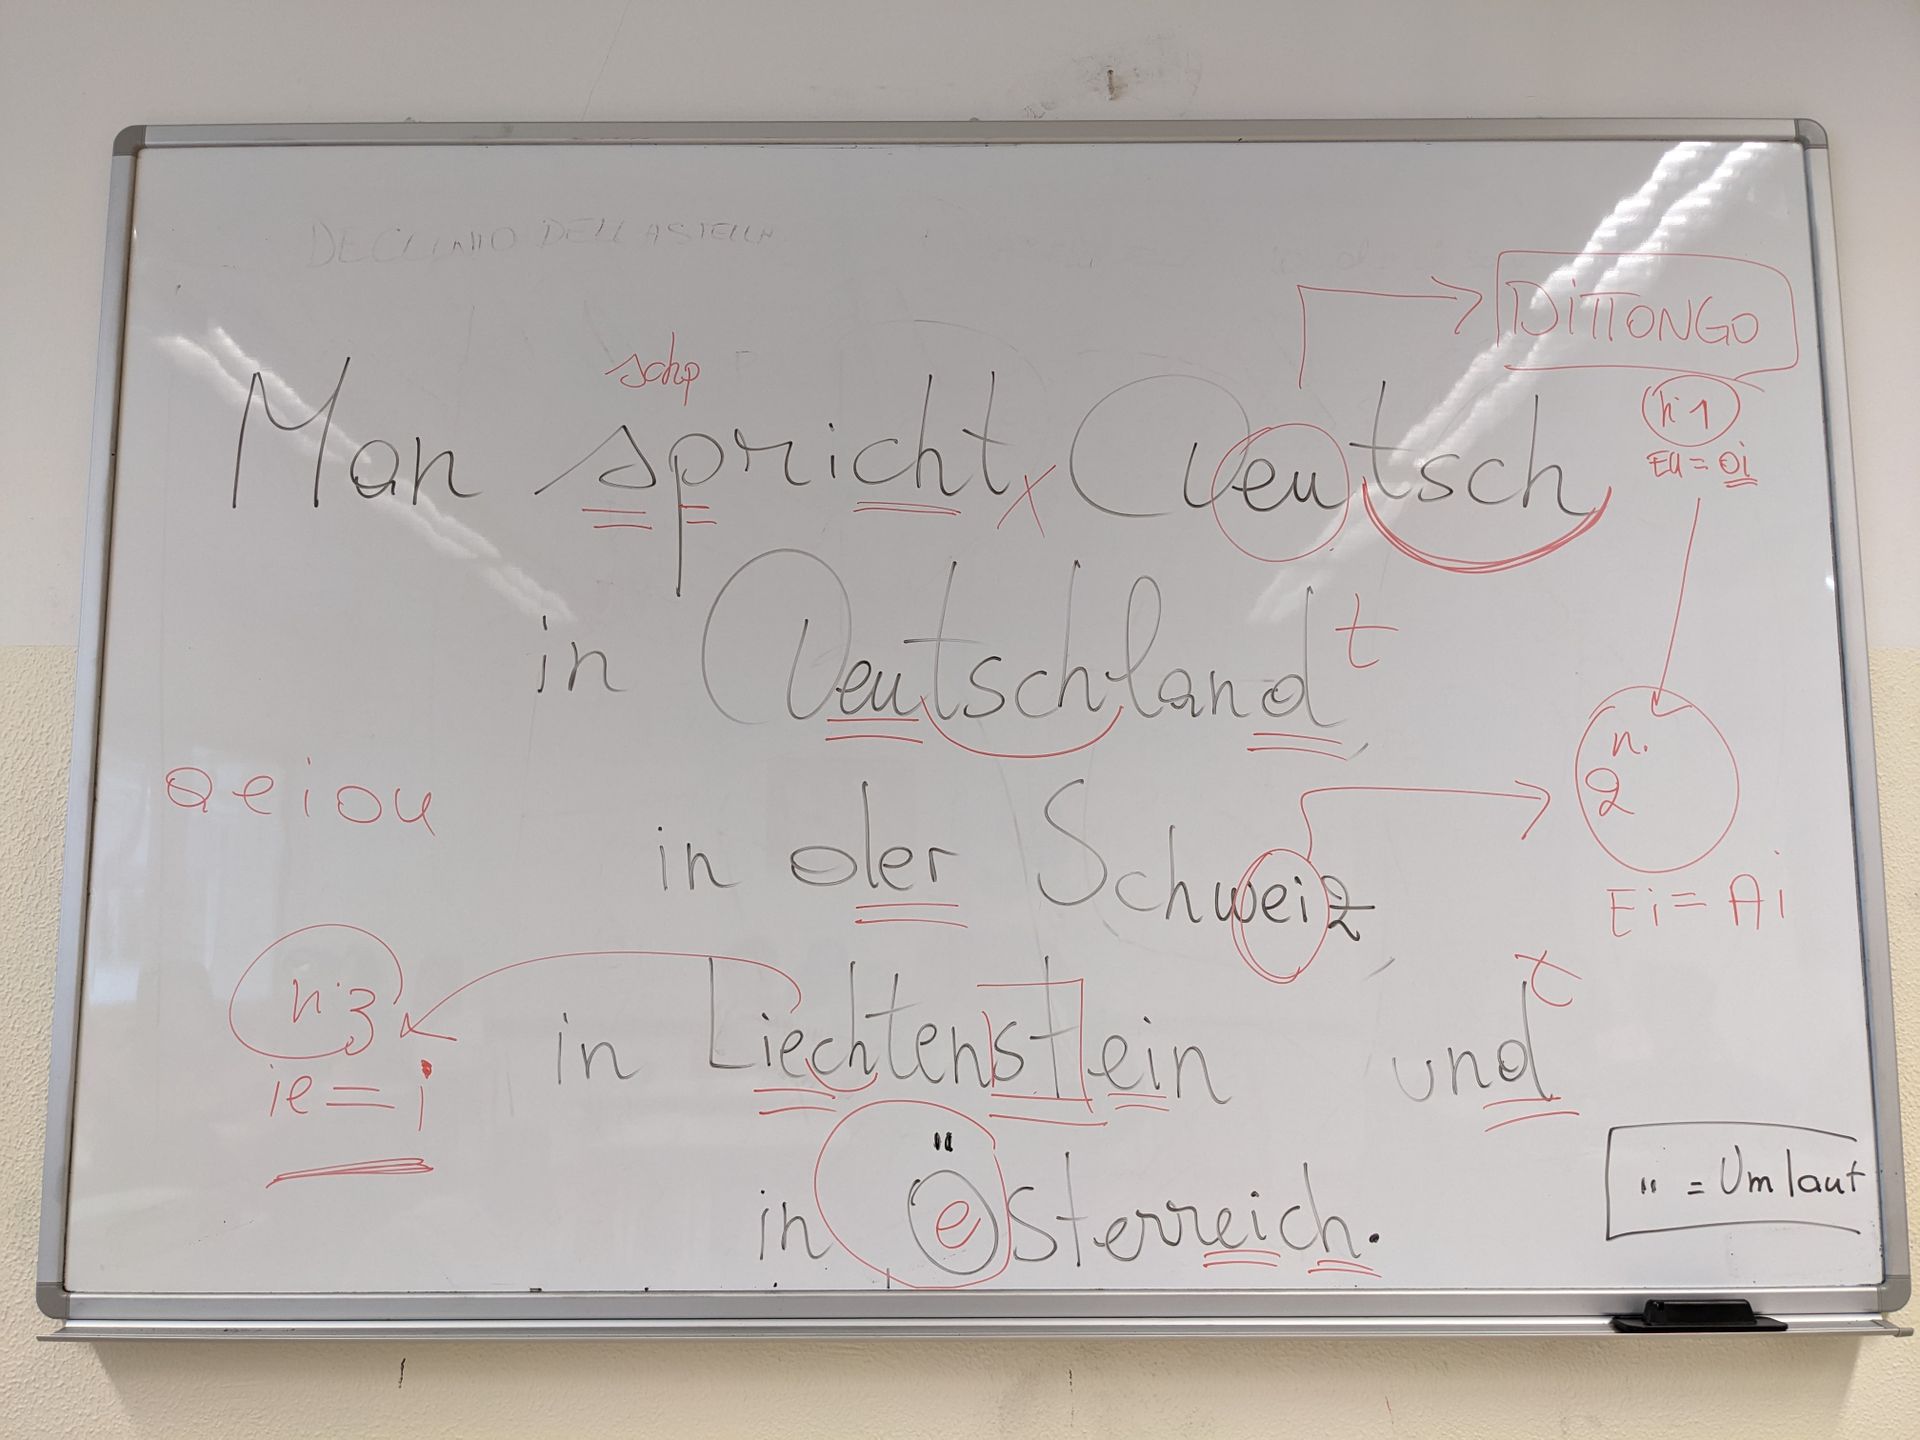 DITTONGO
schp
n. 1
Man spricht, Deutsch
EU = oi
t
in Deutschland,
n.
2
a e i o u
in der Schweiz,
Ei = Ai
t
n. 3
in Liechtenstein und
ie = i
" = Umlaut
e
in Österreich.